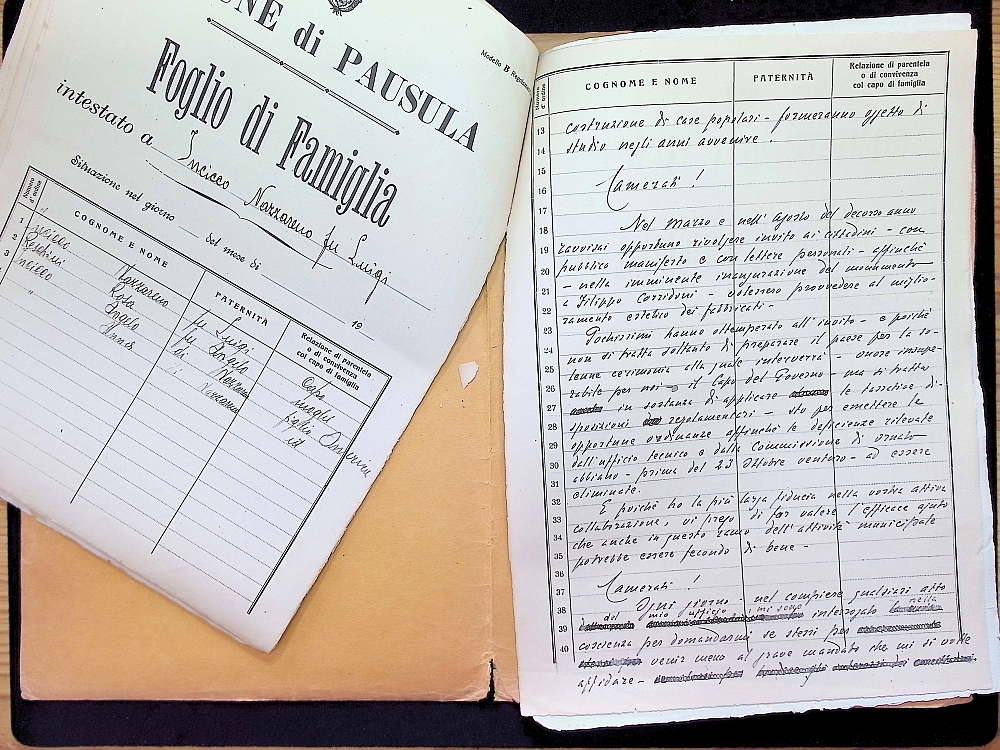 NE di PAUSULA
Modello B
Foglio di Famiglia
intestato a Incicco Nazzareno fu Luigi
Situazione nel giorno del mese di 19
Numero d'ordine
COGNOME E NOME
PATERNITÀ
Relazione di parentela
o di convivenza
col capo di famiglia
1 Incicco Nazzareno fu Luigi Capo
2 Rosa fu Angelo moglie
3 Incicco Angelo di Nazzareno figlio
" di Nazzareno id
Numero d'ordine
COGNOME E NOME
PATERNITÀ
Relazione di parentela
o di convivenza
col capo di famiglia
13 costruzione di case popolari - formeranno oggetto di
14 studio negli anni avvenire.
15
16 Camerati!
17
18 Nel Marzo e nell'Agosto del decorso anno
19 ravvisai opportuno rivolgere invito ai cittadini - con
20 pubblico manifesto e con lettere personali - affinchè
21 - nella imminente inaugurazione del monumento
22 a Filippo Corridoni - volessero provvedere al miglio-
ramento estetico dei fabbricati.
23 Pochissimi hanno ottemperato all'invito - e poichè
24 non si tratta soltanto di preparare il paese per la so-
25 lenne ceremonia alla quale interverrà - onore insupe-
26 rabile per noi - il Capo del Governo - ma si tratta
27 in sostanza di applicare le tassative di-
28 sposizioni regolamentari - sto per emettere le
29 opportune ordinanze affinchè le deficienze rilevate
30 dall'ufficio tecnico e dalla Commissione di ornato
31 abbiano - prima del 23 Ottobre venturo - ad essere
eliminate.
32 E poichè ho la più larga fiducia nella vostra attiva
33 collaborazione, vi prego di far valere l'efficace ajuto
34 che anche in questo ramo dell'attività municipale
35 potrebbe essere fecondo di bene -
36
37 Camerati!
38 Ogni giorno - nel compiere qualsiasi atto
39 del mio ufficio mi sono interrogato nella
40 coscienza per domandarmi se stessi per
venir meno al grave mandato che mi si volle
affidare -